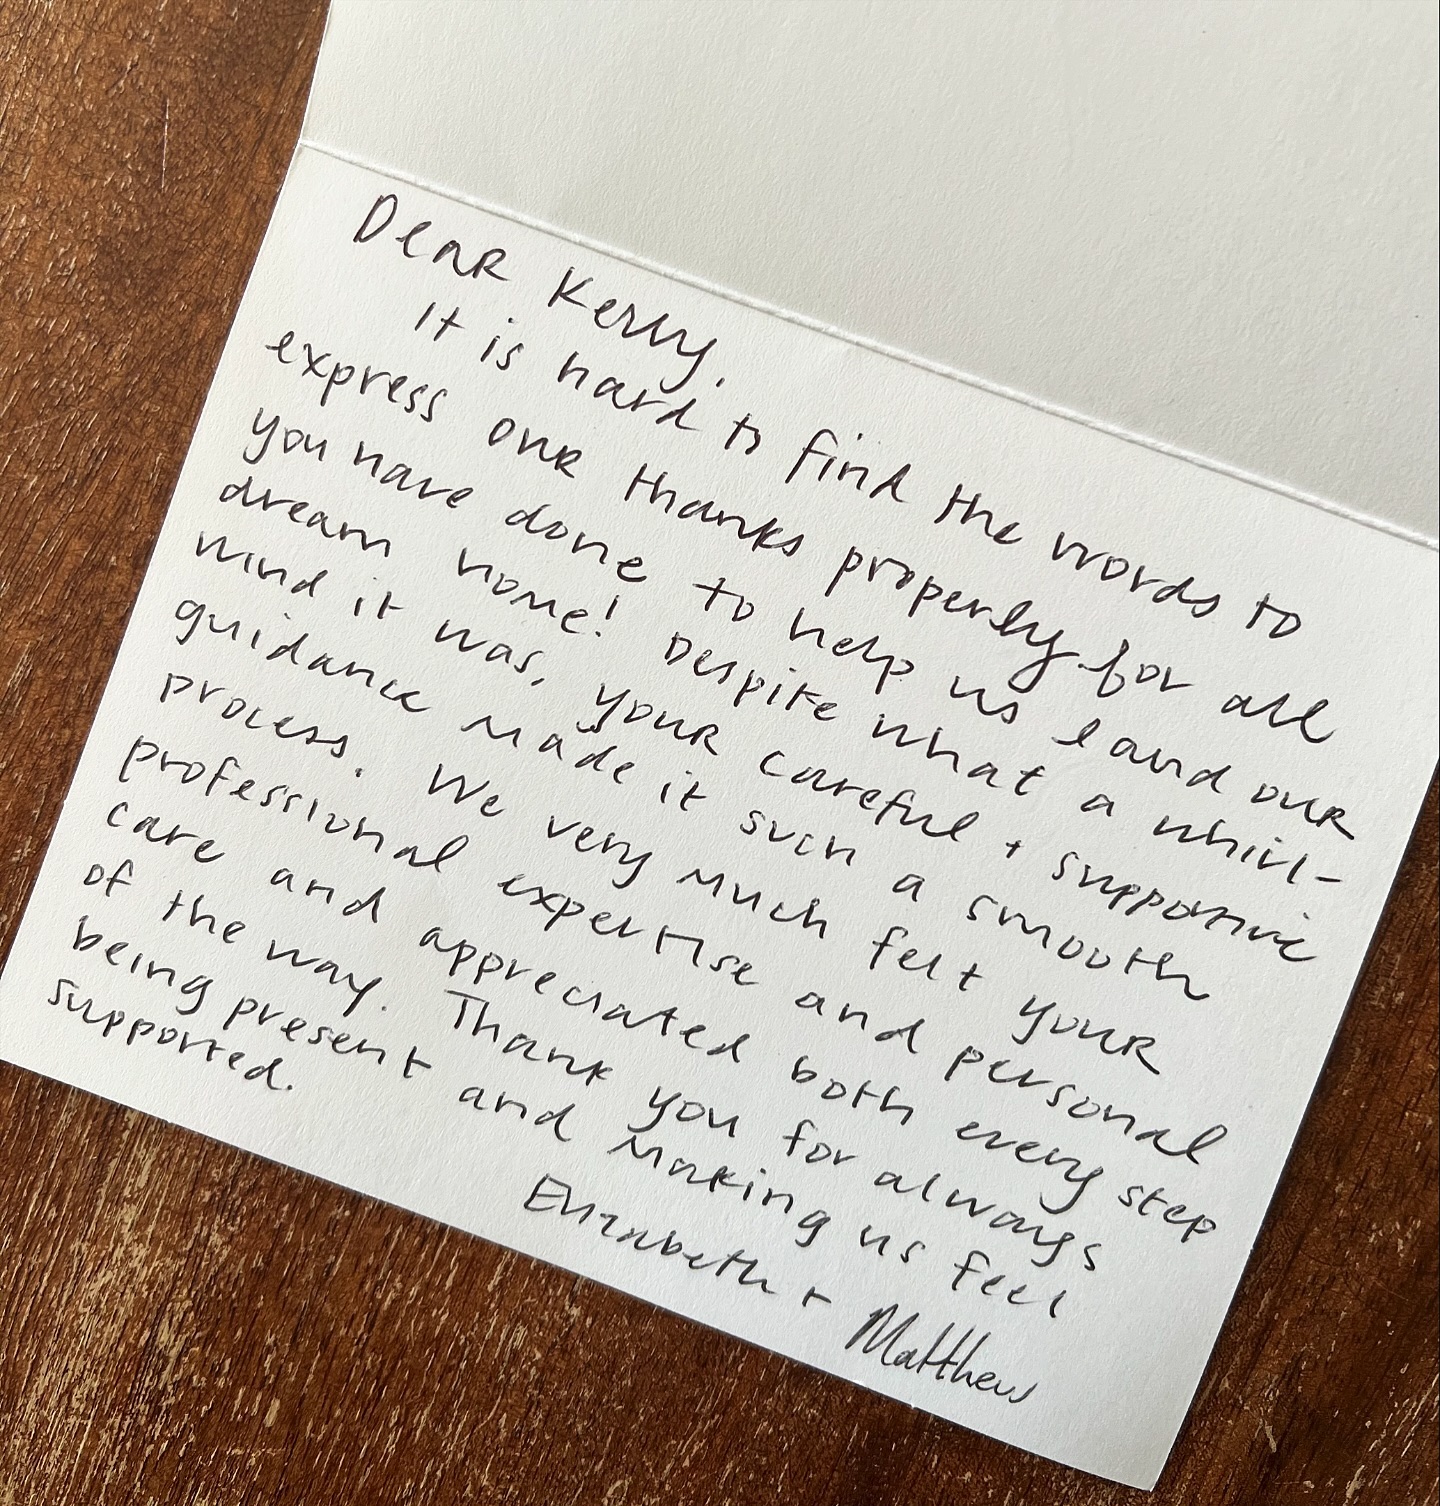 Dear Kerry,
It is hard to find the words to
express our thanks properly for all
you have done to help us land our
dream home! Despite what a whirl-
wind it was, your careful + supportive
guidance made it such a smooth
process. We very much felt your
professional expertise and personal
care and appreciated both every step
of the way. Thank you for always
being present and making us feel
supported.
Elizabeth + Matthew